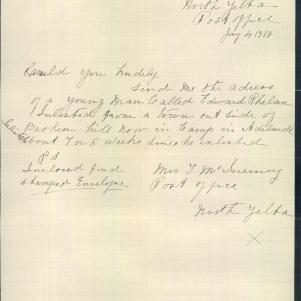 North Yelta
Post office
Jay 4 1918
Could you kindly
send me the adress
of a young man Called Edward Phelan
Inlisted from a town out side of
Broken Hill Now in Camp in Adelaide
about 7 or 8 weeks since he inlisted
PS
Inclosed find
stamped Envelope
Mrs T McInerney
Post office
North Yelta
X